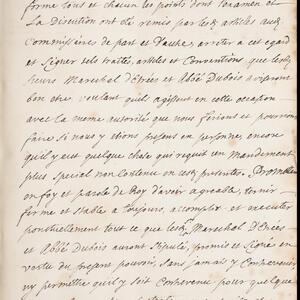 forme tout et chacun les points dont l'examen et
La Discution ont été remis par lesd. articles aux
Commissaires de part et d'autre, arreter a cet egard
et Signer tels traités, articles et Conventions que lesd.
Sieurs Mareschal d'Estrées et Abbé Dubois aviseront
bon etre, voulant qu'ils agissent en cette occasion
avec la meme autorité que nous ferions et pourrions
faire si nous y etions presens en personne, encore
qu'il y eut quelque chose qui requit un Mandement
plus Special non contenu en cesd. presentes. Promettons
en foy et parole de Roy d'avoir agreable, tenir
ferme et stable a toujours, accomplir et executer
ponctuellement tout ce que lesd. Mareschal d'Estrées
et Abbé Dubois auront Stipulé, promis et Signé en
vertu du present pouvoir, sans jamais y Contrevenir
ny permettre qu'il y soit Contrevenu pour quelque